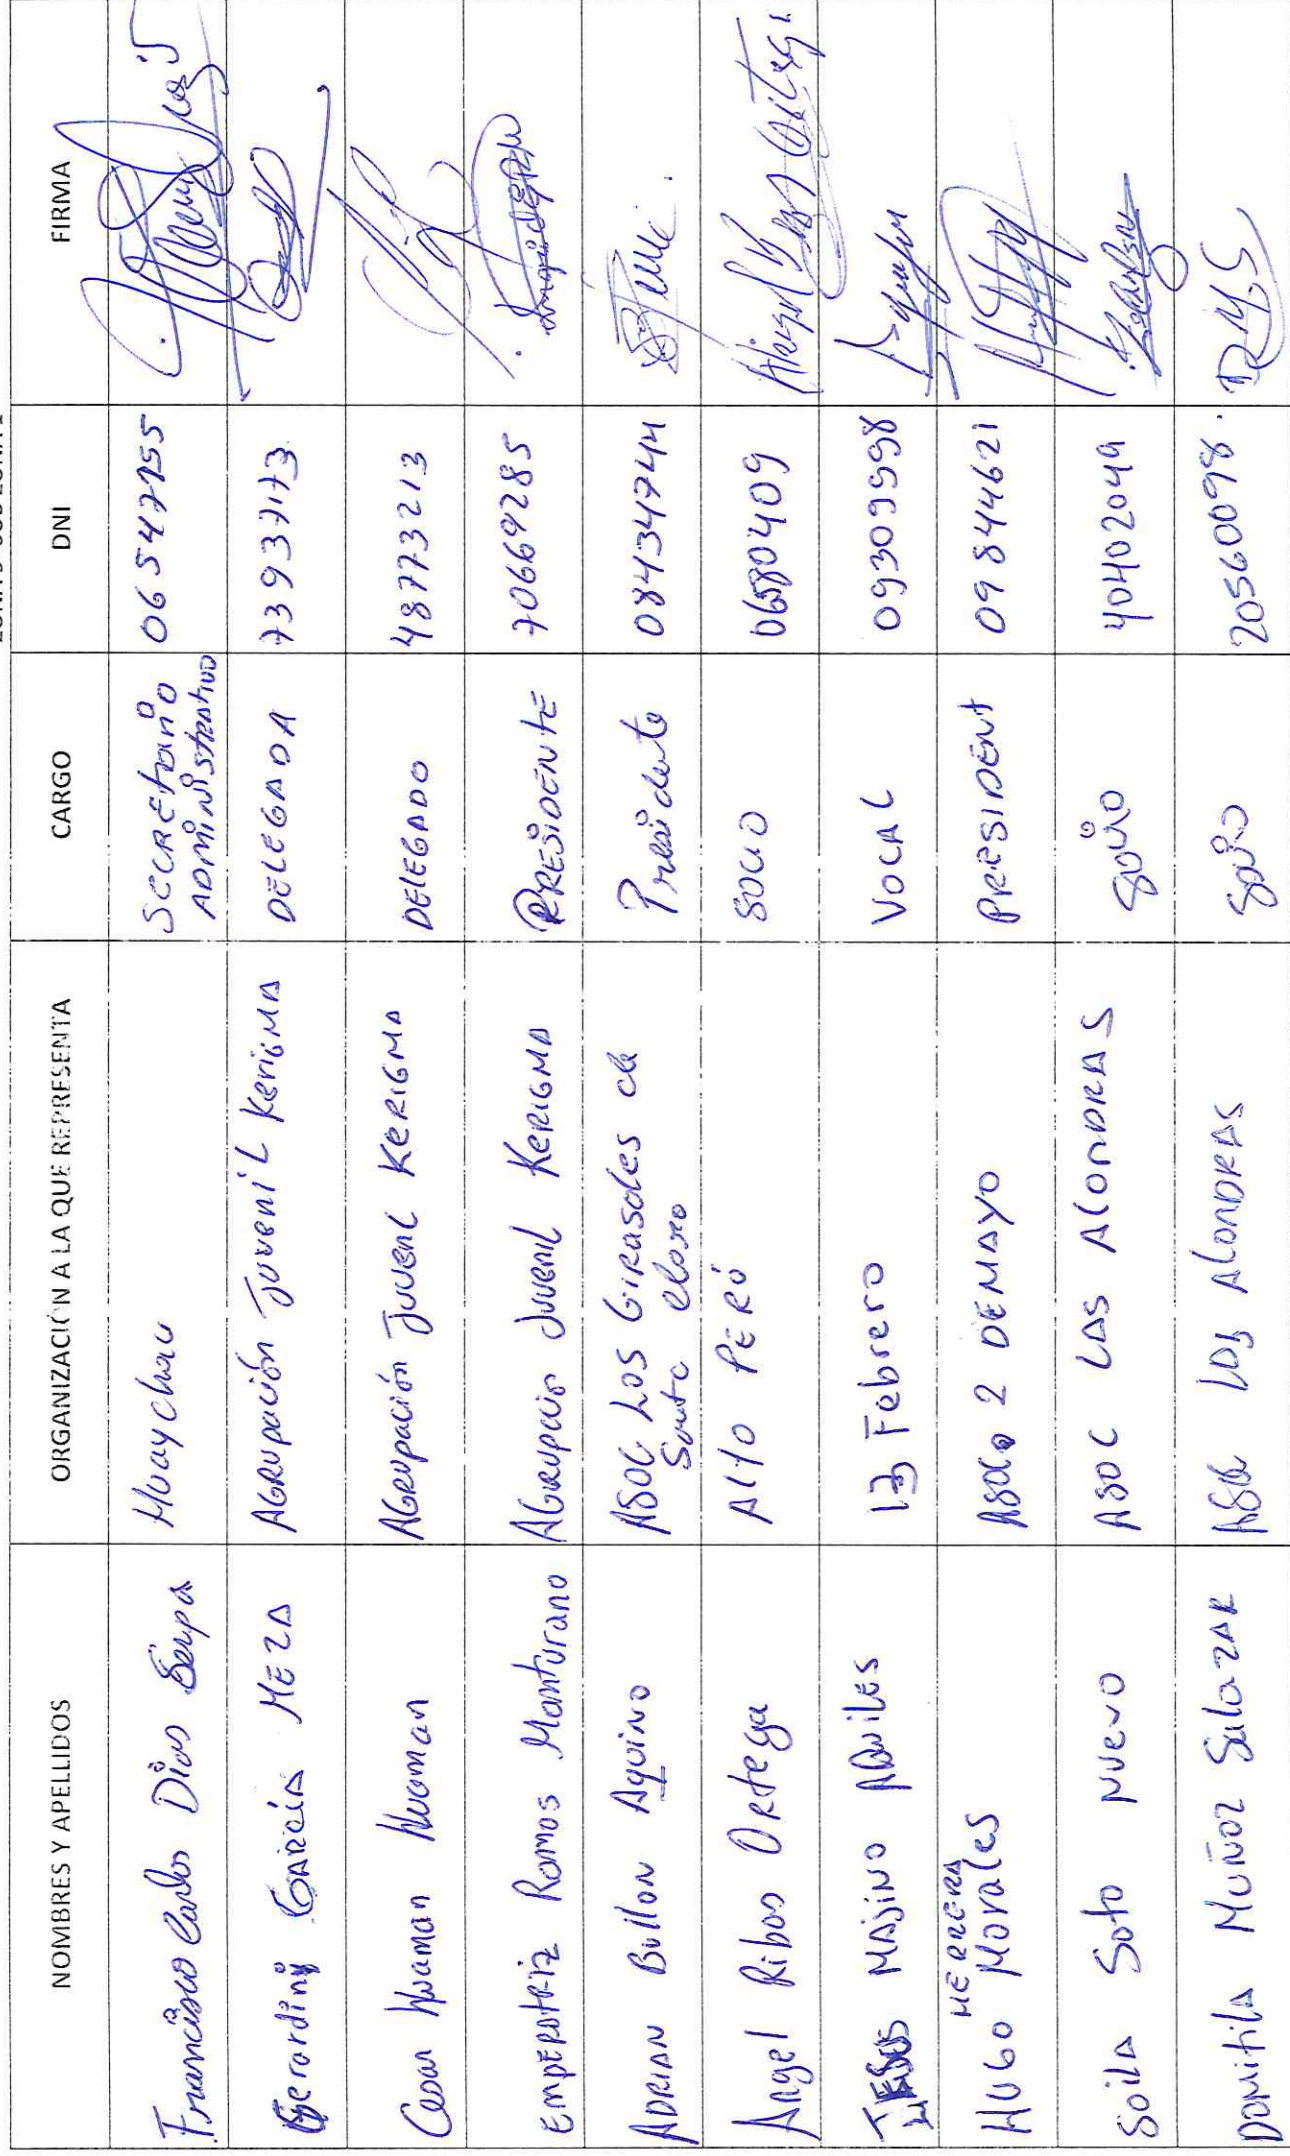 NOMBRES Y APELLIDOS ORGANIZACIÓN A LA QUE REPRESENTA CARGO DNI FIRMA
Francisco Carlos Dias Serpa Huaychau Secretario Administrativo
Gerardiny García MEZA Agrupación Juvenil Kerigma DELEGADA 73937173
Cesar Huaman Huaman Agrupación Juvenil KERIGMA DELEGADO 48773213
EMPERATRIZ Ramos Manturano Agrupación Juvenil KERIGMA PRESIDENTE 70669285
ADRIAN Bullon Aquino ASOC LOS GIRASOLES de Santa Clara Presidente 08434744
Angel Ribas Ortega Alto PERÚ SOCIO
JESUS MAJINO AVILES 13 Febrero VOCAL 09309998
HUGO HERRERA Morales Asoc. 2 DE MAYO PRESIDENT 09844621
Soila Soto Nuevo ASOC LAS ALONDRAS Socio 40402049
DOMITILA MUÑOZ SalaZAR LAS ALONDRAS Socio 20560098.